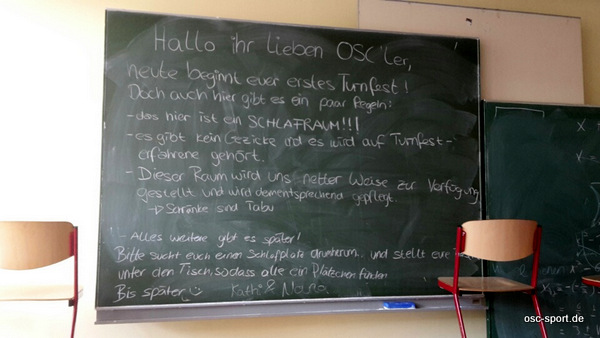 Hallo ihr lieben OSC'ler,
heute beginnt euer erstes Turnfest!
Doch auch hier gibt es ein paar Regeln:
- das hier ist ein SCHLAFRAUM!!!
- es gibt kein Gezicke und es wird auf Turnfest-
erfahrene gehört.
- Dieser Raum wird uns netter Weise zur Verfügung
gestellt und wird dementsprechend gepflegt.
→ Schränke sind Tabu
- Alles weitere gibt es später!
Bitte sucht euch einen Schlafplatz drumherum.. und stellt eure
unter den Tisch, sodass alle ein Plätzchen finden
Bis später ☺ Kathi & Noura
osc-sport.de